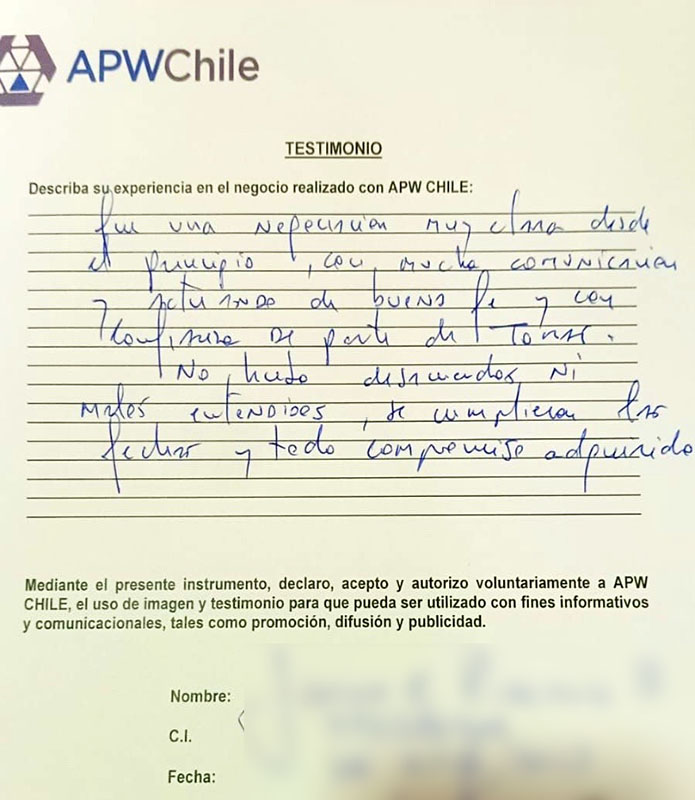 APWChile
TESTIMONIO
Describa su experiencia en el negocio realizado con APW CHILE:
fue una negociación muy clara desde
el principio, con mucha comunicación
y actuando de buena fe y con
confianza de parte de
No hubo desacuerdos Ni
malos entendidos, se cumplieron las
fechas y todo compromiso adquirido
Mediante el presente instrumento, declaro, acepto y autorizo voluntariamente a APW
CHILE, el uso de imagen y testimonio para que pueda ser utilizado con fines informativos
y comunicacionales, tales como promoción, difusión y publicidad.
Nombre:
C.I.
Fecha: